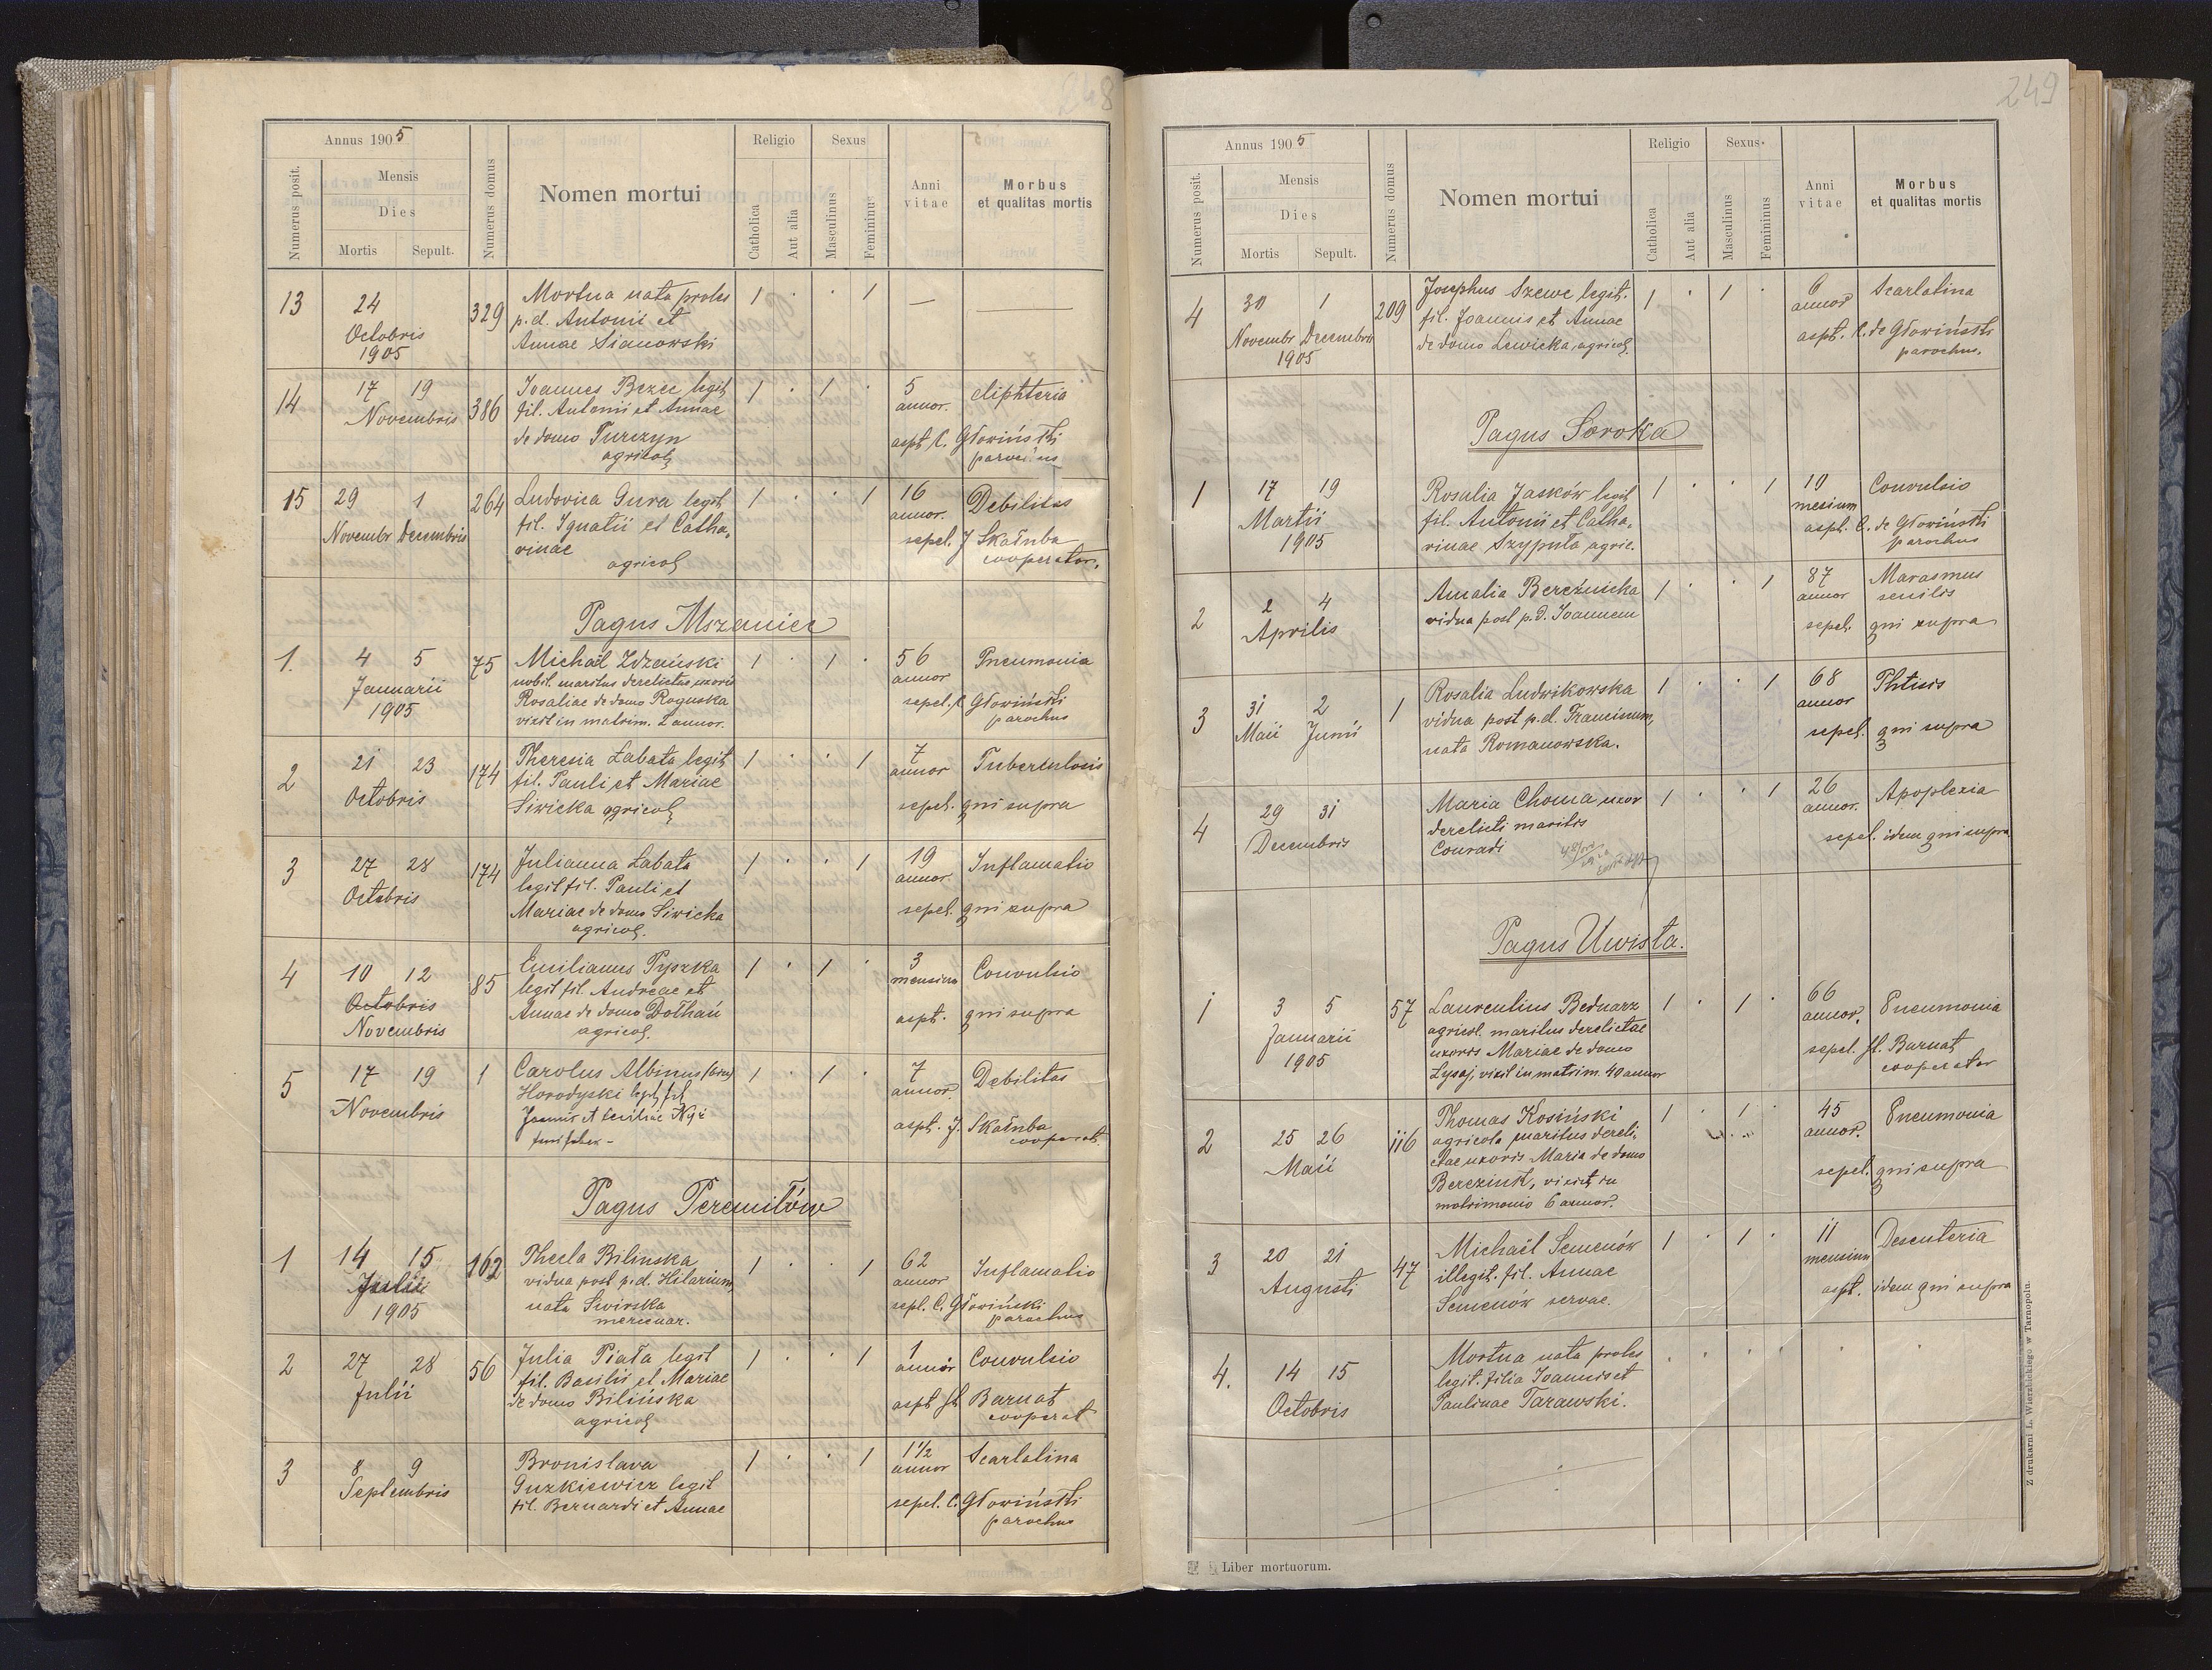 248
Annus 1905
Numerus posit.
Mensis
Dies
Mortis Sepult.
Numerus domus
Nomen mortui
Religio
Catholica
Aut alia
Sexus
Masculinus
Femininus
Anni
vitae
Morbus
et qualitas mortis
13 24 329 Mortua nata proles 1 · · 1 —
Octobris p. d. Antonii et
1905 Annae Sianowski
14 17 19 386 Joannes Bezec legit 1 · 1 · 5 diphteria
Novembris fil. Antonii et Annae annor.
de domo Turczyn aspt. C. Głowiński
agricol parochus
15 29 1 264 Ludovica Gura legit 1 · · 1 16 Debilitas
Novembr Decembris fil. Ignatii et Catha, annor.
rinae sepel. J Skałuba
agricol cooperator.
Pagus Mszaniec
1. 4 5 75 Michaël Zdzański 1 · 1 · 56 Pneumonia
Januarii nobil. maritus derelictae uxoris annor
1905 Rosaliae de domo Roguska sepel. C Głowiński
vixit in matrim. 2 annor. parochus
2 21 23 174 Theresia Łabata legit 1 · · 1 7 Tuberculosis
Octobris fil. Pauli et Mariae annor
Siwicka agricol sepel. qui supra
3 27 28 174 Julianna Łabata 1 · · 1 19 Inflamatio
Octobris legit fil. Pauli et annor.
Mariae de domo Siwicka sepel. qui supra
agricol.
4 10 12 85 Emilianus Pyszka 1 · 1 · 3 Convulsio
Octobris legit fil. Andreae et mensium
Novembris Annae de domo Dołhań aspt. qui supra
agricol.
5 17 19 1 Carolus Albinus (bin) 1 · 1 · 7 Debilitas
Novembris Horodyski legit fil annor.
Joannis et Ceciliae Nyż aspt. J. Skałuba
cooperat.
Pagus Peremiłów
1 14 15 162 Thecla Bilinska 1 · · 1 62 Inflamatio
Julii vidua post p. d. Hilarium, annor
1905 nata Swirska sepl. C. Głowiński
mercenar. parochus
2 27 28 56 Julia Piała legit 1 · · 1 1 Convulsio
Julii fil. Basilii et Mariae annor
de domo Bilińska aspt St Barnat
agricol cooperat
3 8 9 Bronislava 1 · · 1 1½ Scarlatina
Septembris Guzkiewicz legit annor
fil. Bernardi et Annae sepel. C. Głowiński
parochus
249
Annus 1905
Numerus posit.
Mensis
Dies
Mortis Sepult.
Numerus domus
Nomen mortui
Religio
Catholica
Aut alia
Sexus
Masculinus
Femininus
Anni
vitae
Morbus
et qualitas mortis
4 30 1 209 Josephus Szewc legit. 1 · 1 · 6 Scarlatina
Novembr Decembris fil. Joannis et Annae annor
1905 de domo Lewicka, agricol. aspt. C. de Głowiński
parochus.
Pagus Soroka
1 17 19 Rosalia Jasków legit 1 · · 1 10 Convulsio
Martii fil. Antonii et Catha, mesium
1905 rinae Szypuła agric. aspt. C. de Głowiński
parochus
2 2 4 Amalia Bereżnicka 1 · · 1 87 Marasmus
Aprilis vidua post p. d. Joannem annor senilis
sepel. qui supra
3 31 2 1 Rosalia Ludwikowska 1 · · 1 68 Phtisis
Maii Junii vidua post p. d. Franciscum, annor
nata Romanowska. sepel. qui supra
4 29 31 Maria Choma uxor 1 · · 1 26 Apoplexia
Decembris derelicti maritis annor.
Conradi sepel. idem qui supra
Pagus Uwista.
1 3 5 57 Laurentius Bednarz 1 · 1 · 66 Pneumonia
Januarii agricol. maritus derelictae annor.
1905 uxoris Mariae de domo sepel. St. Barnat
Łysaj, vixit in matrim. 40 annor cooperator
2 25 26 116 Thomas Kosiński 1 · 1 · 45 Pneumonia
Maii agricola maritus dereli, annor.
ctae uxoris Maria de domo
Bereziuk, vixit in sepel. qui supra
matrimonio 6 annor.
3 20 21 47 Michaël Semenów 1 · 1 · 11 Desenteria
Augusti illegit. fil. Annae mensium
Semenów servae. aspt. idem qui supra
4. 14 15 Mortua nata proles · · · · · ·
Octobris legit. filia Joannis et
Paulinae Tarawski.
Liber mortuorum.
Z drukarni L. Wierzbickiego w Tarnopolu.